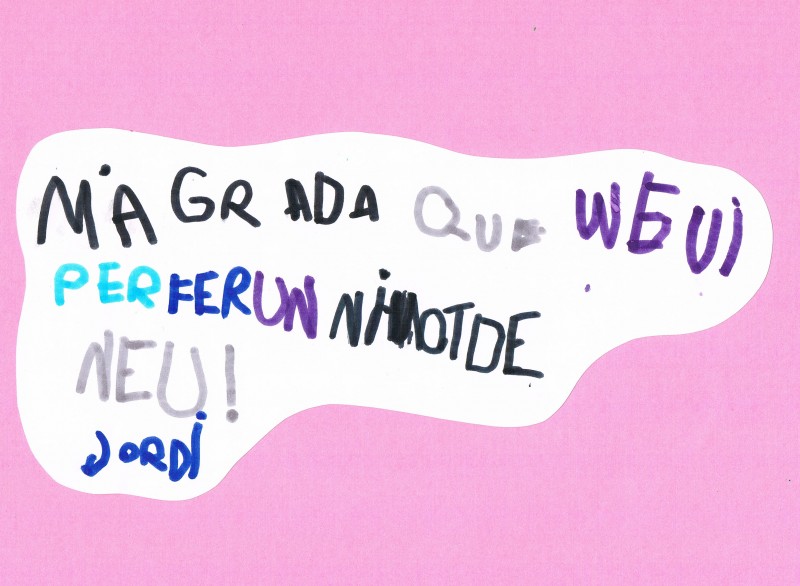 M'AGRADA QUE WEUi
PER FER UN NiNOT DE
NEU!
JORDi